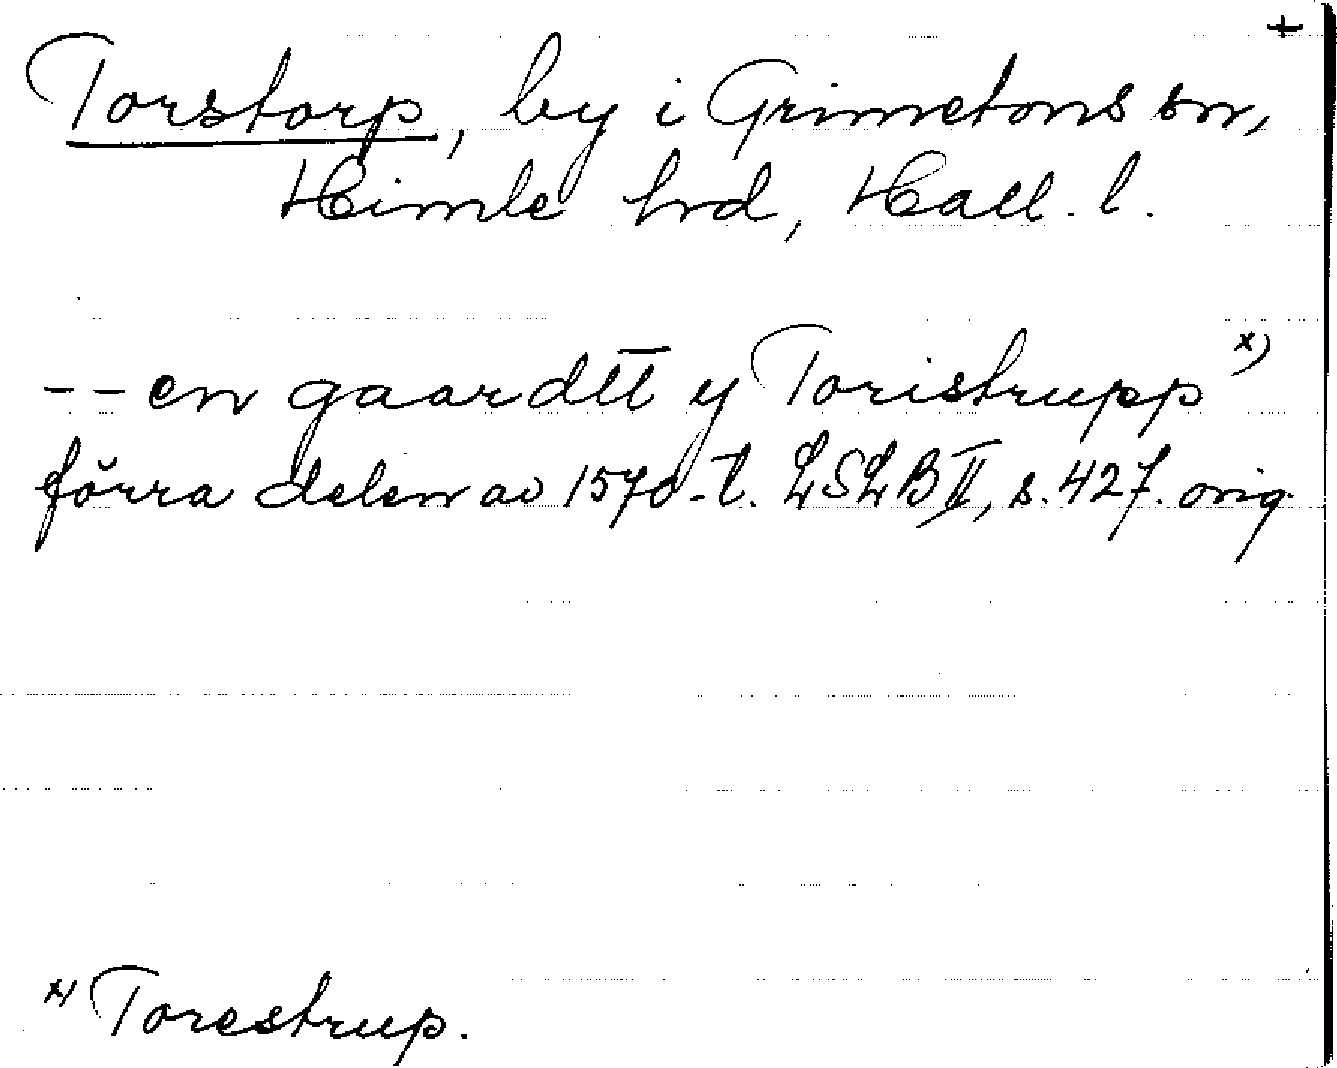 +
Torstorp, by i Grimetons sn,
Himle hrd, Hall. l.
-- en gaardtt y Toristrupp x)
förra delen av 1570-t. LSLB II, s. 427. orig.
x) Torestrup.